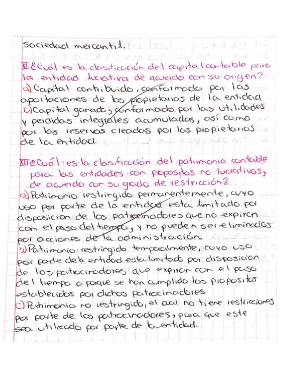 sociedad mercantil.
VI ¿Cuál es la clasificación del capital contable para
la entidad lucrativa de acuerdo con su origen?
a) Capital contribuido, conformado por las
aportaciones de los propietarios de la entidad
b) Capital ganado, conformado por las utilidades
y perdidas integrales acumuladas, así como
por las reservas creadas por los propietarios
de la entidad
VII ¿Cuál es la clasificación del patrimonio contable
para las entidades con propositos no lucrativos,
de acuerdo con su grado de restricción?
a) Patrimonio restringido permanentemente, cuyo
uso por parte de la entidad esta limitado por
disposicion de los patrocinadores que no expiran
con el paso del tiempo, y no pueden ser eliminadas
por acciones de la administración.
b) Patrimonio restringido temporalmente, cuyo uso
por parte de la entidad esta limitado por disposicion
de los patrocinadores, que expiran con el paso
del tiempo o porque se han cumplido los propositos
establecidos por dichos patrocinadores
c) Patrimonio no restringido, el cual no tiene restricciones
por parte de los patrocinadores, para que este
sea utilizado por parte de la entidad.